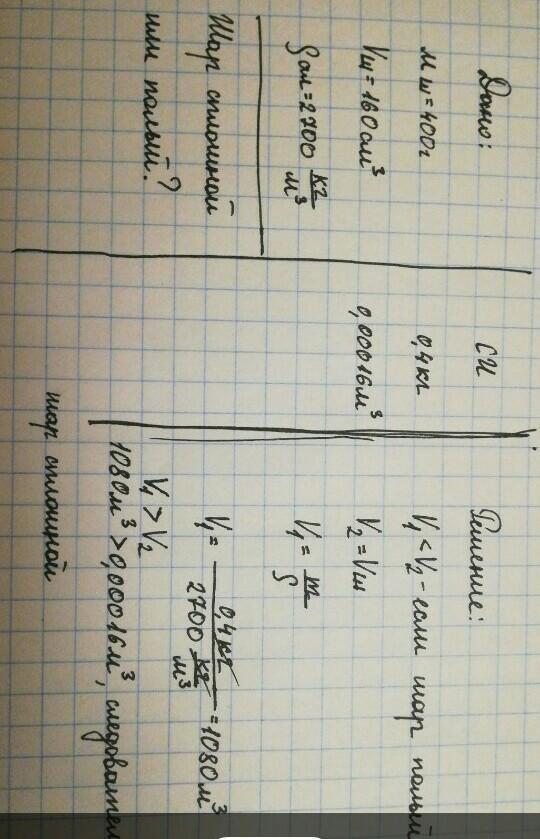 Дано:
Mш = 400г
Vш = 160см³
ρал = 2700 кг/м³
Шар сплошной
или полый?
СИ
0,4кг
0,00016м³
Решение:
V₁ < V₂ - если шар полый
V₂ = Vш
V₁ = m/ρ
V₁ = 0,4кг/2700 кг/м³ = 1080м³
V₁ > V₂
1080м³ > 0,00016м³, следовател
шар сплошной